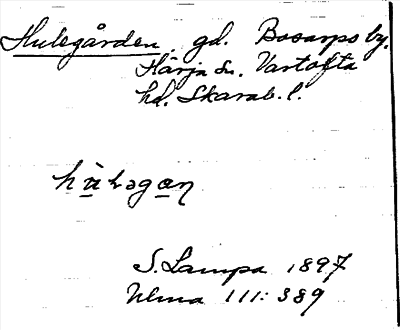 Hulegården, gd. Bosarps by.
Härja sn. Vartofta
hd. Skarab. l.
S. Lampa 1897
Ulma 111:389